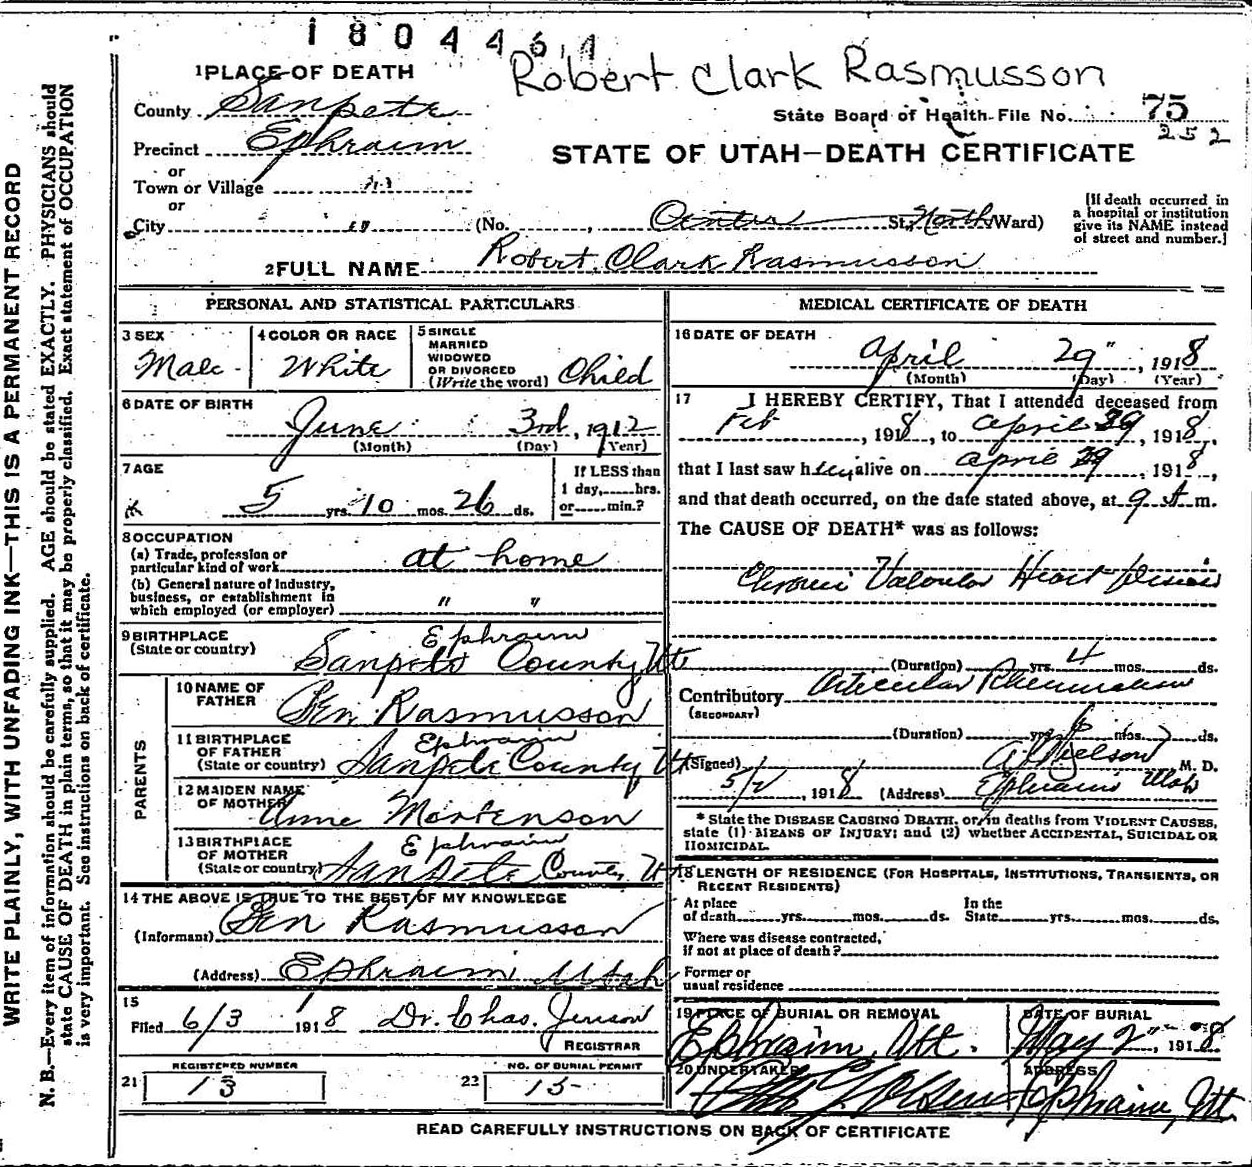 1804464
Robert Clark Rasmusson
1 PLACE OF DEATH
County Sanpete
State Board of Health File No. 75
252
Precinct Ephraim
STATE OF UTAH—DEATH CERTIFICATE
or
Town or Village "
or
City "
(No. , Center St., North Ward)
[If death occurred in
a hospital or institution
give its NAME instead
of street and number.]
2 FULL NAME Robert Clark Rasmusson
PERSONAL AND STATISTICAL PARTICULARS
3 SEX
Male
4 COLOR OR RACE
White
5 SINGLE
MARRIED
WIDOWED
OR DIVORCED
(Write the word) Child
6 DATE OF BIRTH
June 3rd, 1912
(Month) (Day) (Year)
7 AGE
5 yrs. 10 mos. 26 ds.
If LESS than
1 day, hrs.
or min.?
8 OCCUPATION
(a) Trade, profession or
particular kind of work at home
(b) General nature of Industry,
business, or establishment in
which employed (or employer) " "
9 BIRTHPLACE
(State or country)
Ephraim
Sanpete County Ut
PARENTS
10 NAME OF
FATHER
Ben Rasmusson
11 BIRTHPLACE
OF FATHER
(State or country)
Ephraim
Sanpete County Ut
12 MAIDEN NAME
OF MOTHER
Anne Mortenson
13 BIRTHPLACE
OF MOTHER
(State or country)
Ephraim
Sanpete County Ut
14 THE ABOVE IS TRUE TO THE BEST OF MY KNOWLEDGE
(Informant) Ben Rasmusson
(Address) Ephraim Utah
15
Filed 6/3 1918 Dr. Chas. Jenson
REGISTRAR
REGISTERED NUMBER
21 13
NO. OF BURIAL PERMIT
22 15
MEDICAL CERTIFICATE OF DEATH
16 DATE OF DEATH
April 29", 1918
(Month) (Day) (Year)
17 I HEREBY CERTIFY, That I attended deceased from
Feb , 1918, to April 29, 1918,
that I last saw h alive on April 29 1918,
and that death occurred, on the date stated above, at 9 A m.
The CAUSE OF DEATH* was as follows:
Chronic Valvular Heart Disease
(Duration) yrs. 4 mos. ds.
Contributory Articular Rheumatism
(SECONDARY)
(Duration) yrs. mos. ds.
(Signed) M. D.
5/2, 1918 (Address) Ephraim Utah
* State the DISEASE CAUSING DEATH, or, in deaths from VIOLENT CAUSES,
state (1) MEANS OF INJURY; and (2) whether ACCIDENTAL, SUICIDAL OR
HOMICIDAL.
18 LENGTH OF RESIDENCE (FOR HOSPITALS, INSTITUTIONS, TRANSIENTS, OR
RECENT RESIDENTS)
At place
of death yrs. mos. ds.
In the
State yrs. mos. ds.
Where was disease contracted,
if not at place of death?
Former or
usual residence
19 PLACE OF BURIAL OR REMOVAL
Ephraim, Ut.
DATE OF BURIAL
May 2", 1918
20 UNDERTAKER
Olsen
ADDRESS
Ephraim, Ut.
READ CAREFULLY INSTRUCTIONS ON BACK OF CERTIFICATE
WRITE PLAINLY, WITH UNFADING INK—THIS IS A PERMANENT RECORD
N. B.—Every item of information should be carefully supplied. AGE should be stated EXACTLY. PHYSICIANS should
state CAUSE OF DEATH in plain terms, so that it may be properly classified. Exact statement of OCCUPATION
is very important. See instructions on back of certificate.